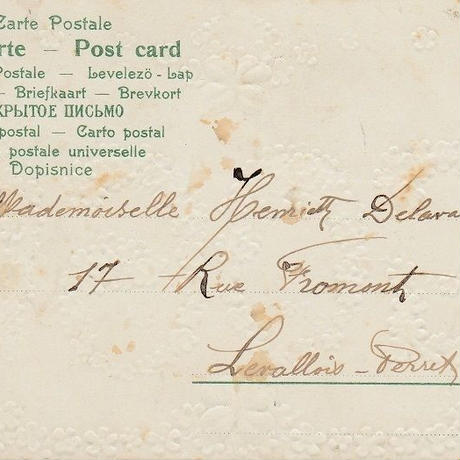 Carte Postale
rte – Post card
Postale — Levelezö - Lap
— Briefkaart — Brevkort
КРЫТОЕ ПИСЬМО
postal — Carto postal
postale universelle
Dopisnice
Mademoiselle Henriette Delava
17 Rue Fromont
Levallois-Perret